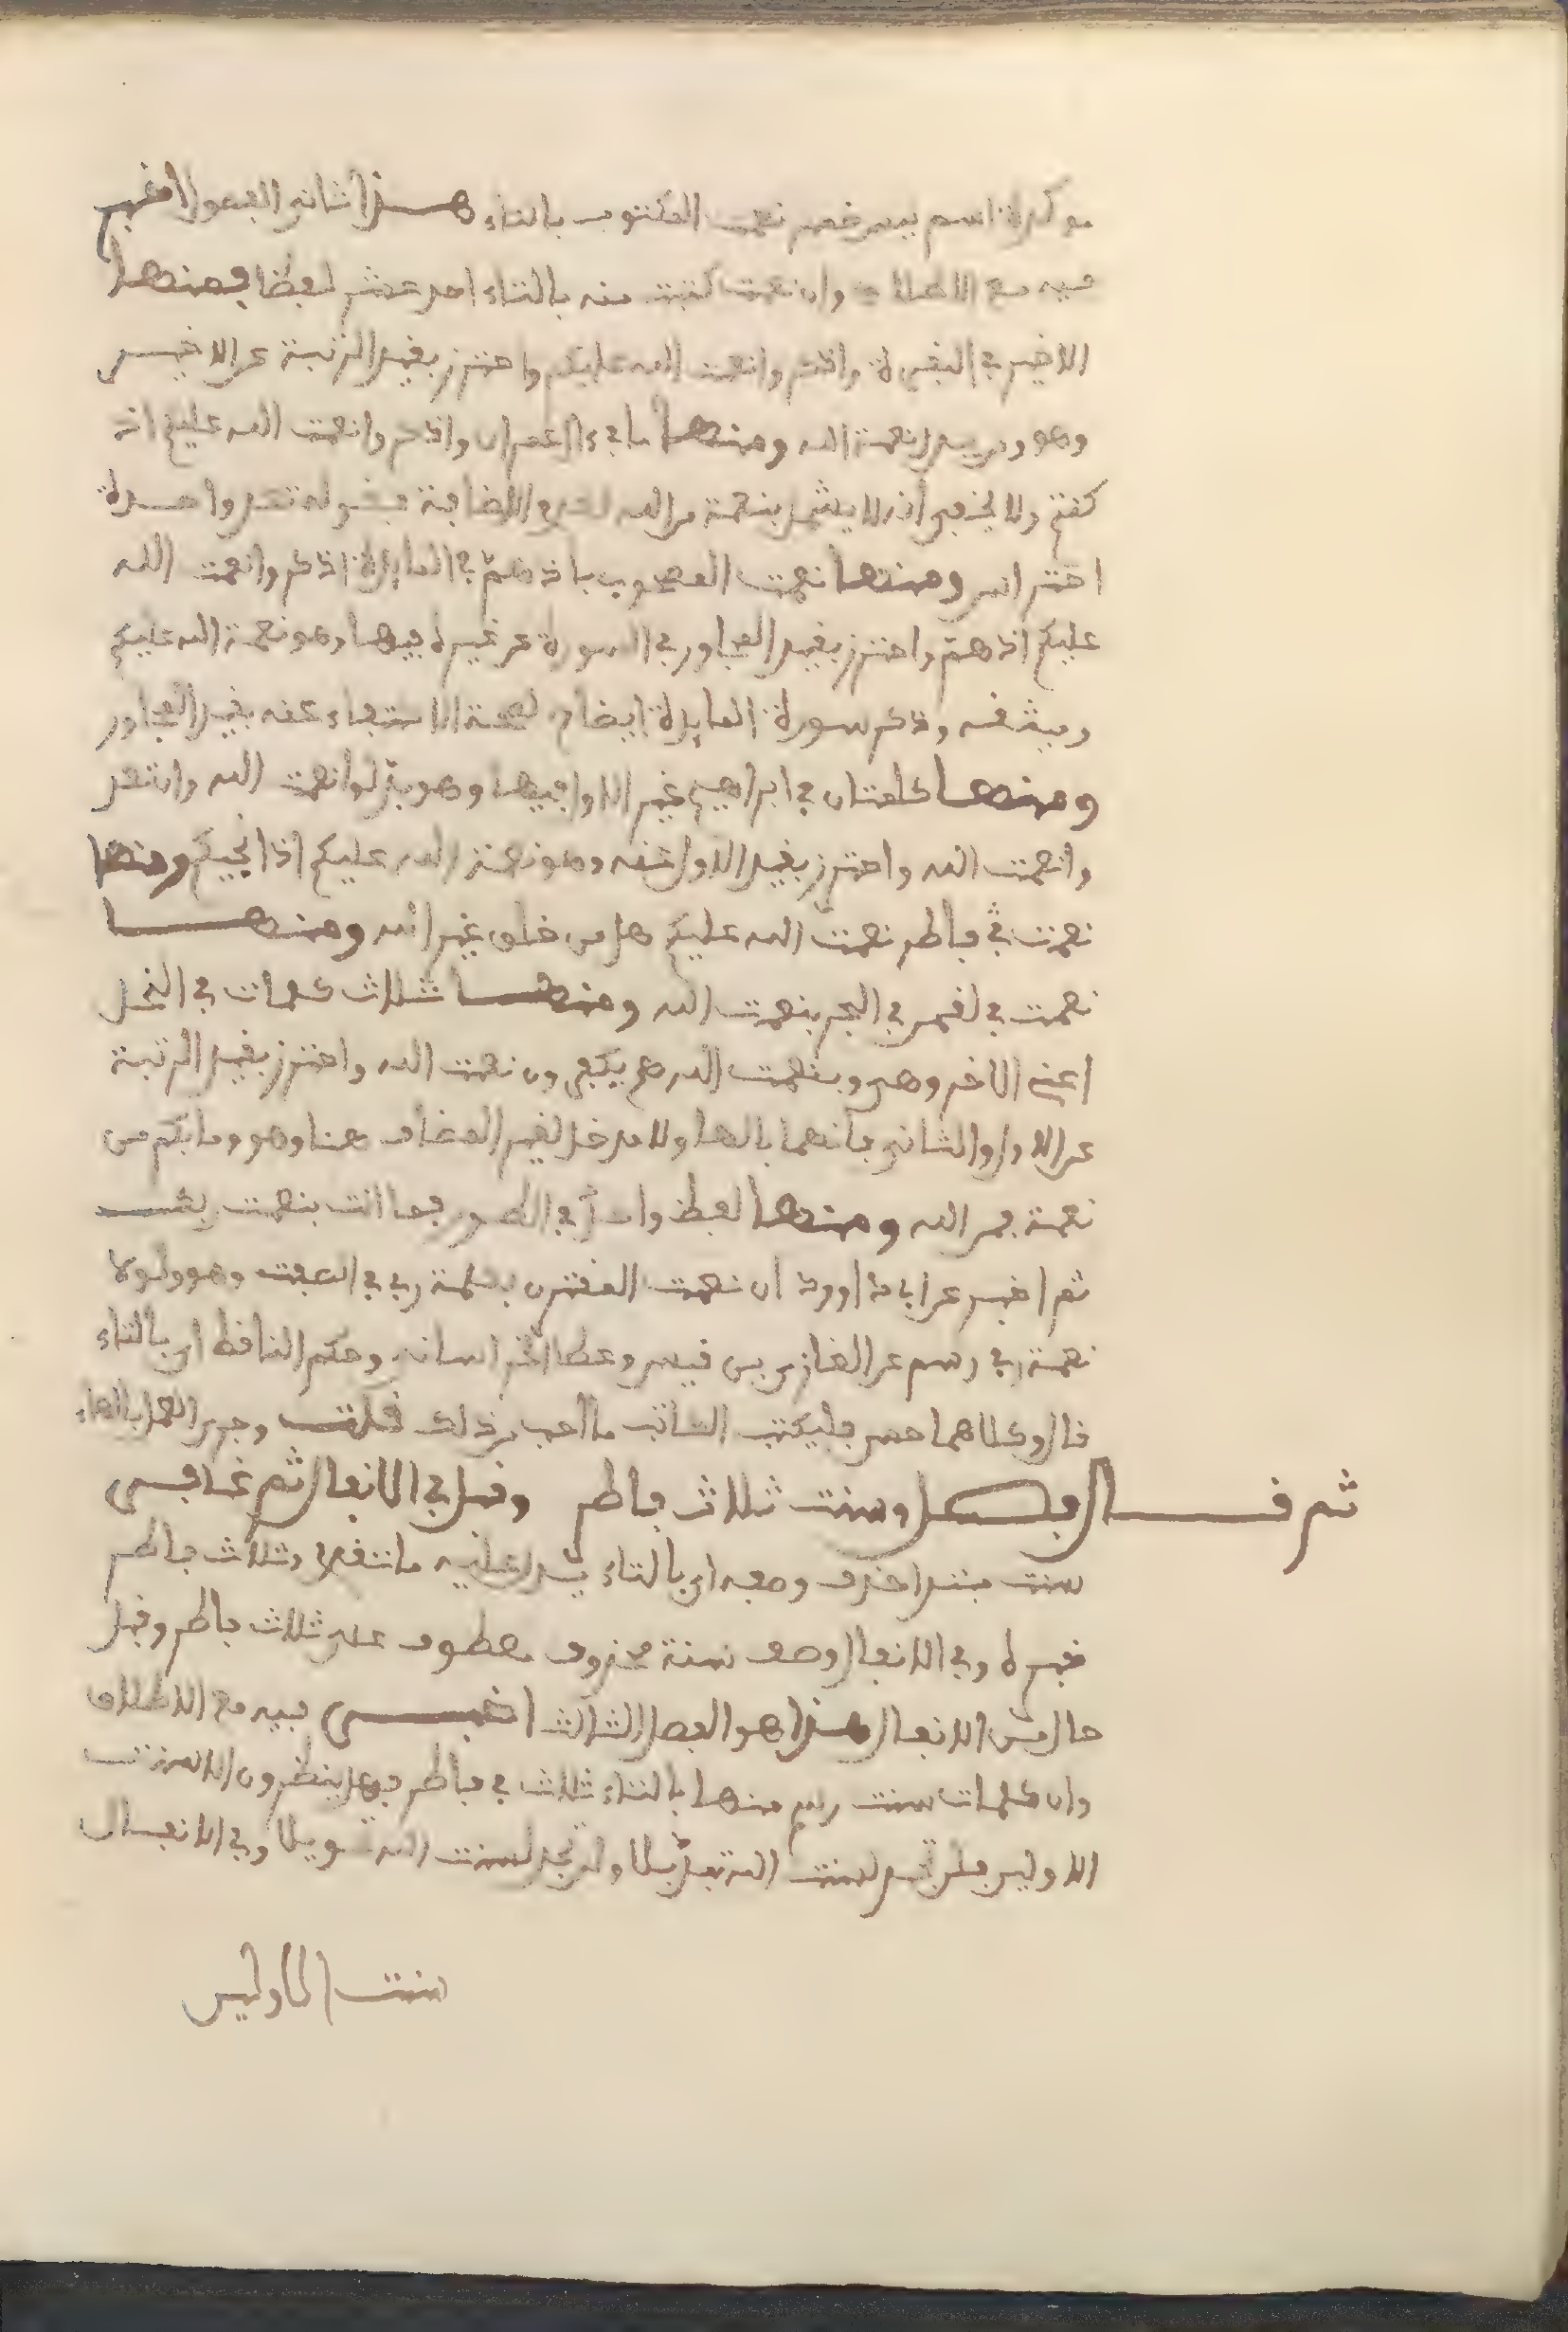 مؤكدة اسم يسر خصر نعمت المكتوب بالتاء هذا ثاني الفصول اخبر
فيه مع الاطلاق وان نعمت كتبت منه بالتاء احد عشر لفظا فمنها
الاخير في البقرة واذكروا نعمت الله عليكم واحترز بقيد الرتبة عن الاخير
وهو ومن يبدل نعمة الله ومنها ما في ءال عمران واذكروا نعمت الله عليكم اذ
كنتم ولا يخفى انه لا يشمل بنعمة من الله لعدم الاضافة فقوله تعد واحدة
احترازا ومنها نعمت المصحوب باذ همّ في المايدة اذكروا نعمت الله
عليكم اذ همّ واحترز بقيد المجاور في السورة عن غيره فيها وهو نعمة الله عليكم
وميثقه وذكر سورة المايدة ايضاح لصحة الاستغناء عنه بقيد المجاور
ومنها كلمتان في ابراهيم غير الاول فيها وهو بدّلوا نعمت الله وان تعد
وا نعمت الله واحترز بقيد الاول عنه وهو نعمة الله عليكم اذ انجيكم ومنها
نعمت في فاطر نعمت الله عليكم هل من خلق غير الله ومنها
نعمت في لقمن في البحر بنعمت الله ومنها ثلاث كلمات في النحل
اعني الاخر وهي وبنعمت الله هم يكفرون نعمت الله واحترز بقيد الرتبة
عن الاول والثاني فانهما بالها ولا مدخل لغير المضاف هنا وهو وما بكم من
نعمة فمن الله ومنها لفظ واحد في الطور فما انت بنعمت ربك
ثم اخبر عن ابي داوود ان نعمت المقترن بكلمة ربي في الصفت وهو ولولا
نعمة ربي رسم عن الغازي بن قيس وعطا الخراساني وحكم الناقط اي بالتاء
قال وكلاهما حسن فليكتب الكاتب ما احب من ذلك قلت وجرى العمل بالهاء
ثم قال فصل وسنت ثلاث فاطر وقبل في الانفال ثم غافر
سنت مبتدا حذف وصفه اي بالتاء يدل عليه ما تقدم وثلاث فاطر
خبره وفي الانفال وصف سنة محذوف معطوف على ثلاث فاطر وقبل
حال من الانفال هذا هو الفصل الثالث اخبر فيه مع الاطلاق
وان كلمات سنت رسم منها بالتاء ثلاث في فاطر فهل ينظرون الا سنت
الاولين فلن تجد لسنت الله تبديلا ولن تجد لسنت الله تحويلا وفي الانفال
سنت الاولين